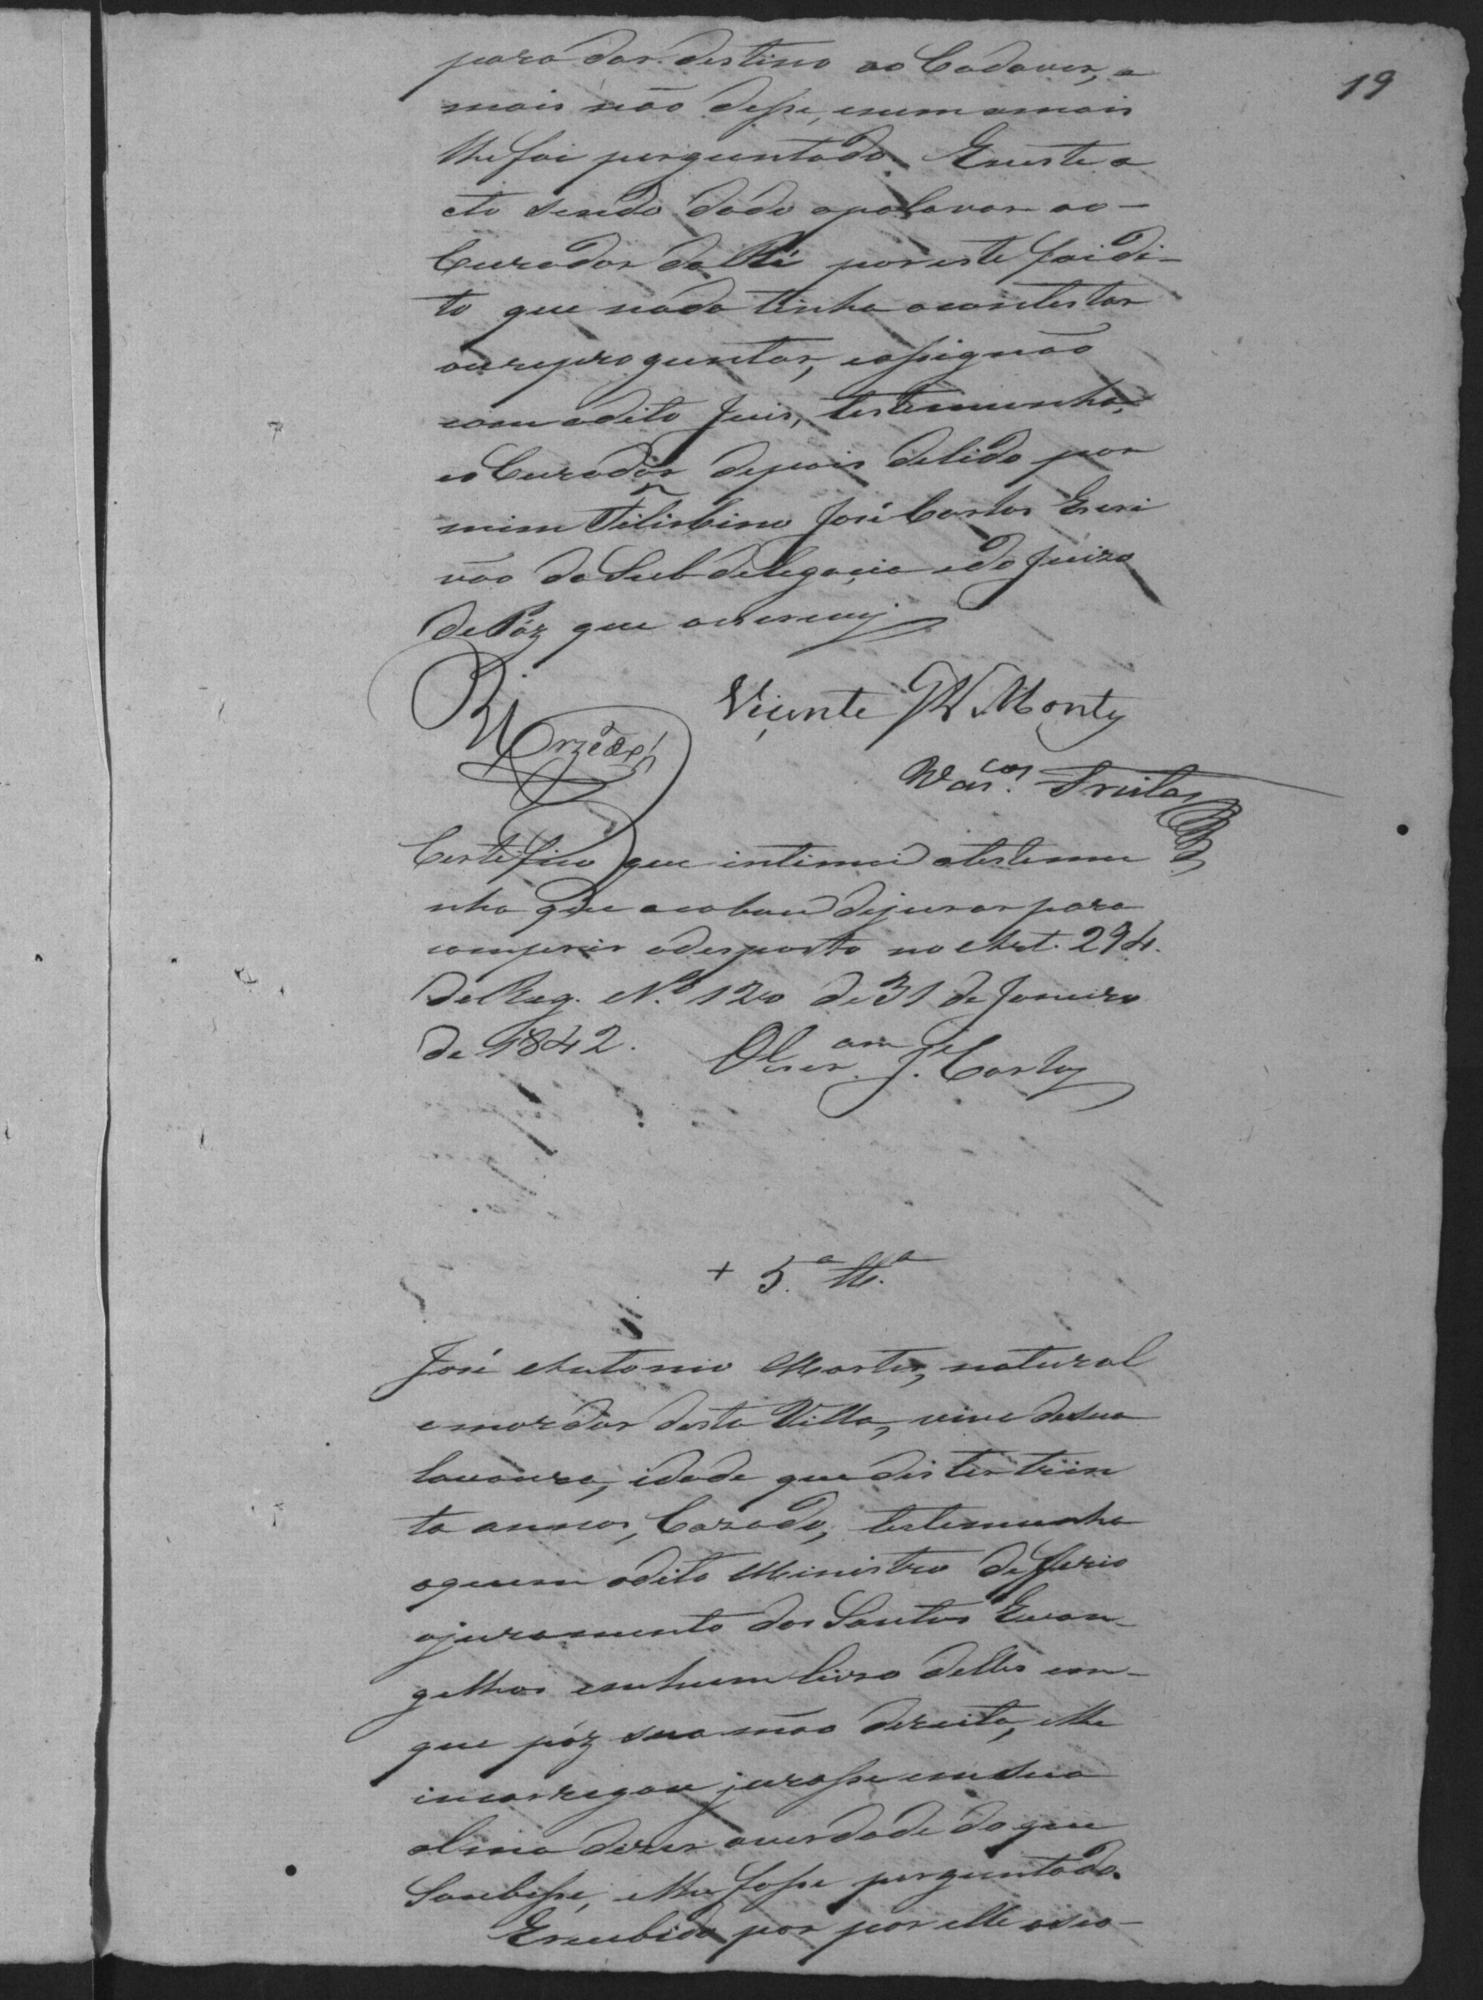 19
para dar destino ao Cadaver, e
mais não disse, enem mais
lhe foi perguntado. Eneste a
cto sendo dada apalavra ao
Curador da Ré por este foi di-
to que nada tinha acontestar
ou reproguntar, eassignão
com odito Juis, testemunha,
eo Curador depois delido por
mim José Carlos Escri
vão da Subdelegacia edo Juizo
de Páz que oescrevy
Vicente Monty
Vas.cos Freitas
Certefico que intimei atestemu
nha que acabou dejurar para
comprir odesposto no Art. 294.
do Reg. N.º 120 de 31 de Janeiro
de 1842.
OEscr.am J.e Carlos
+ 5.a tt.a
José Antonio Martins, natural
emorador desta Villa, vive desua
lavoura, idade que dis ter trin
ta annos, Cazado, testemunha
aquem odito Ministro defferio
ojuramento dos Santos Evan-
gelhos em hum livro delles em-
que pôz sua mão direita, elhe
incarregou jurasse em sua
alma dizer averdade do que
Soubesse, elhe fosse perguntado.
Erecebido por por elle oseo-